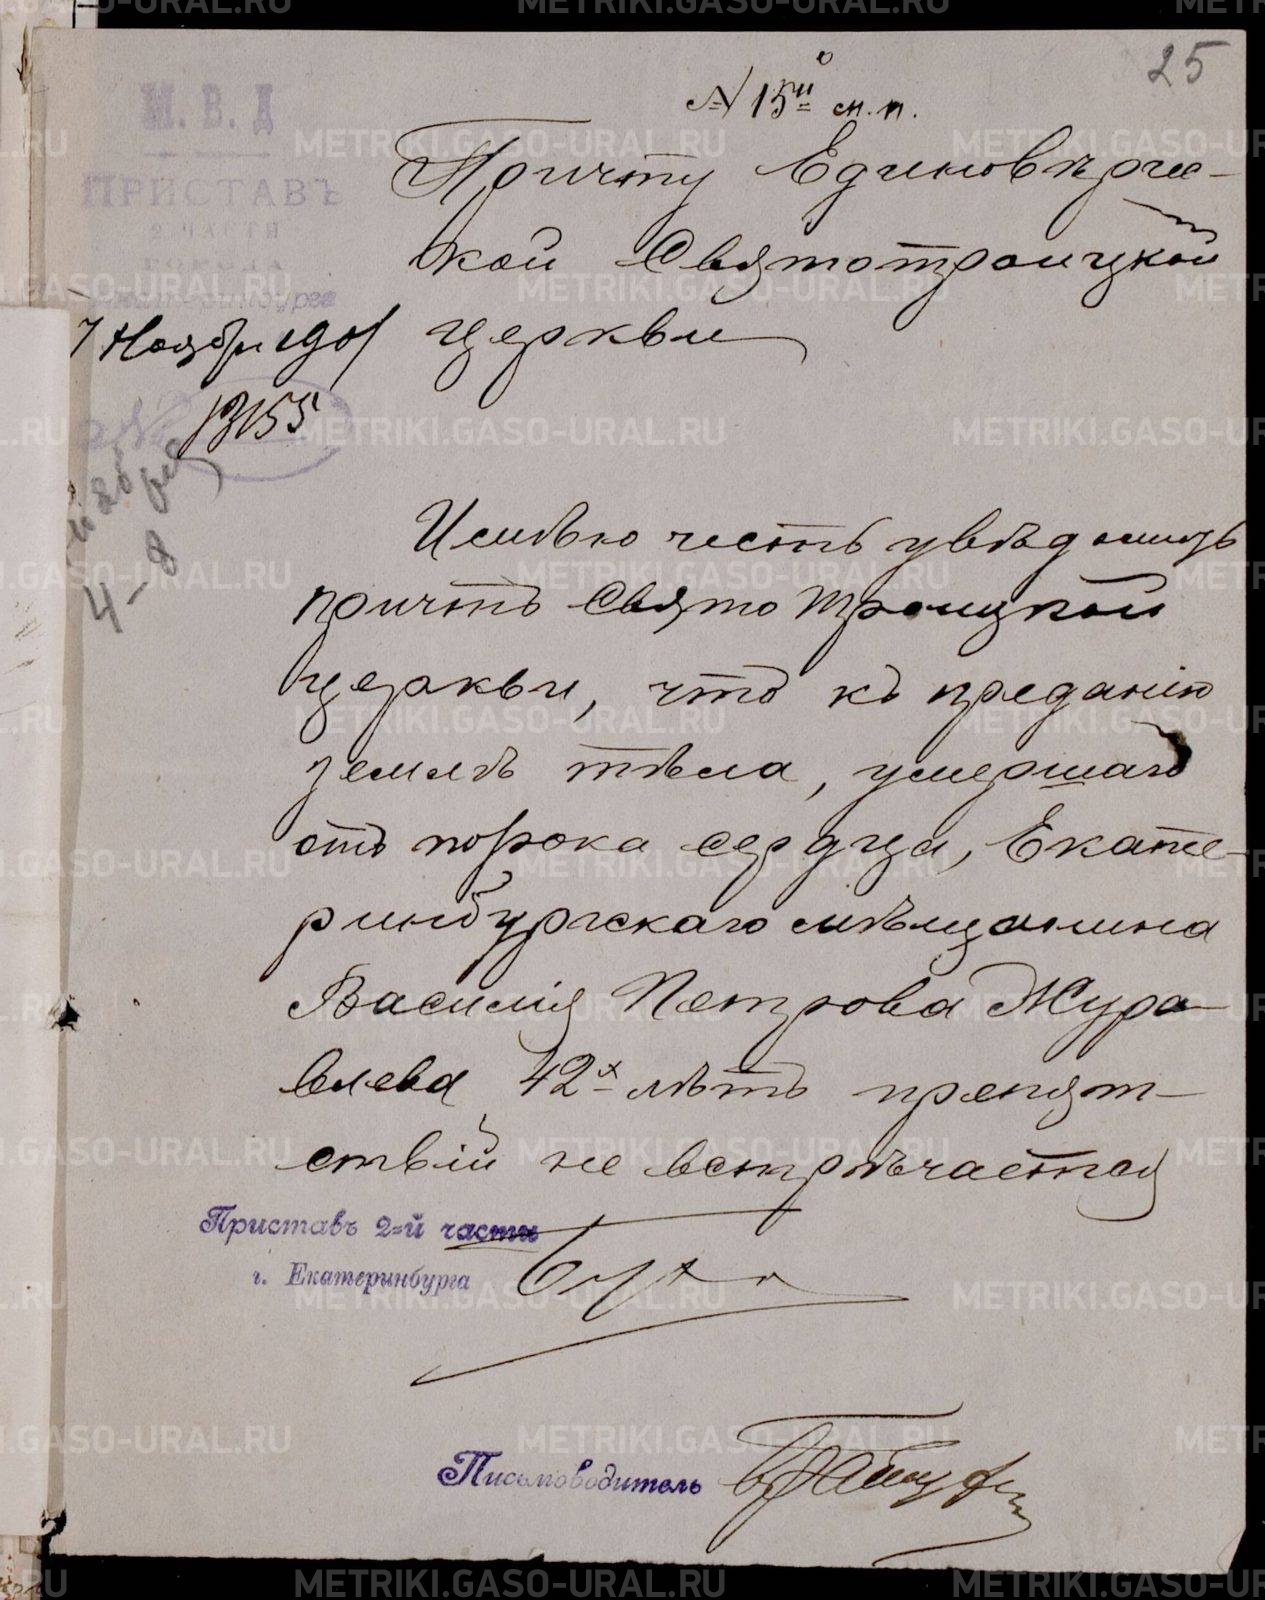 25
№ 15й м.п.
М. В. Д
ПРИСТАВЪ
2 ЧАСТИ
ГОРОДА
Екатеринбурга
7 Ноября 1901
№ 13155
4 – 8
Причту Единоверчес-
кой Святотроицкой
церкви
Имѣю честь увѣдомить
причтъ Святотроицкой
церкви, что къ преданію
землѣ тѣла, умершаго
отъ порока сердца, Екате-
ринбургскаго мѣщанина
Василія Петрова Жура-
влева 42х лѣтъ препят-
ствій не встрѣчается
Приставъ 2-й части
г. Екатеринбурга
Письмоводитель
METRIKI.GASO-URAL.RU